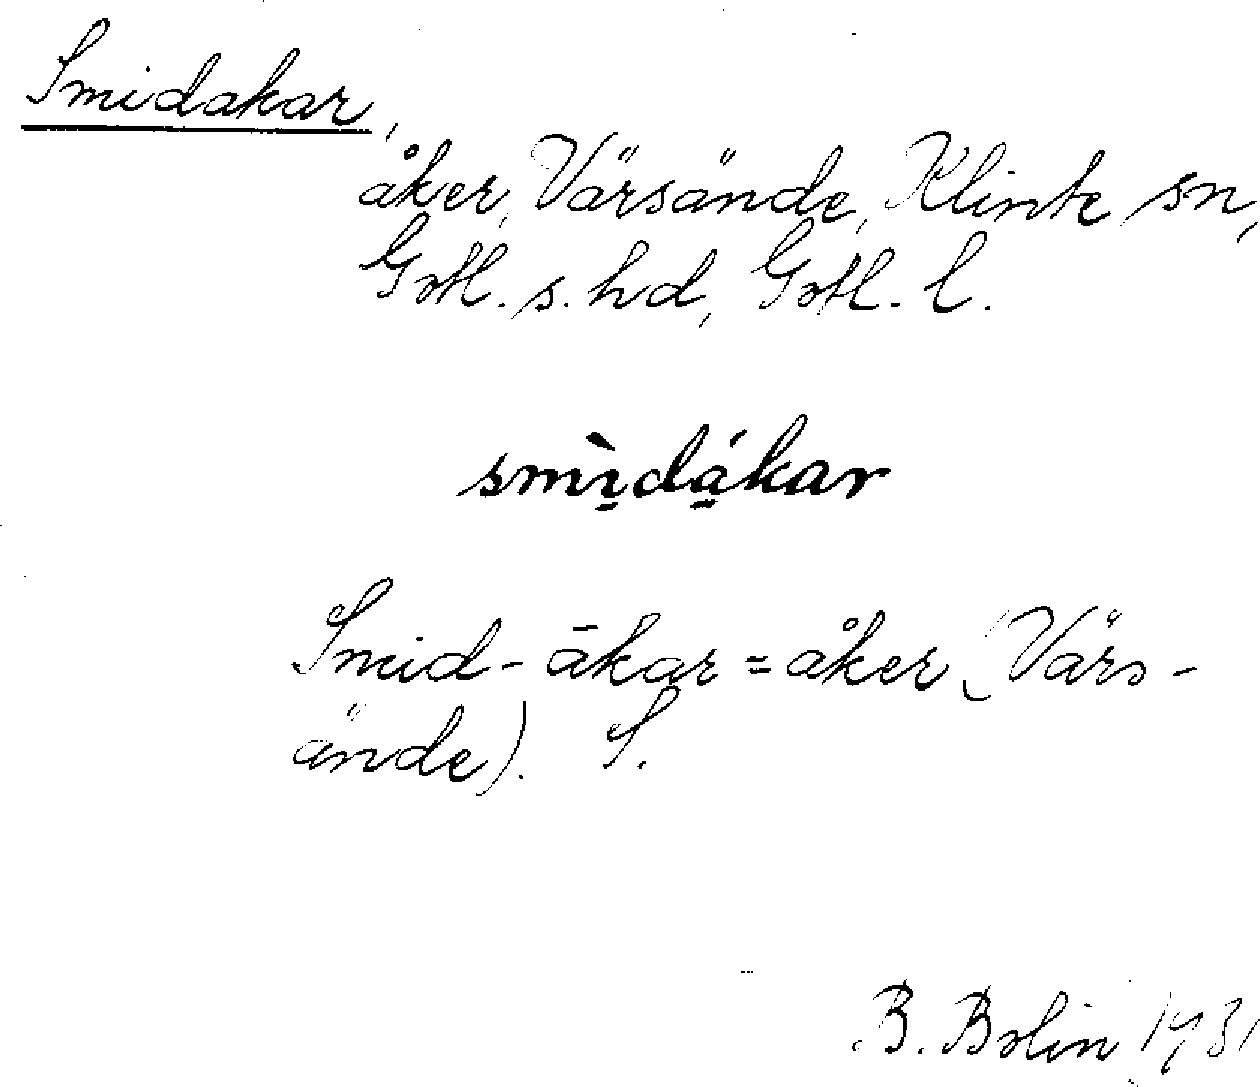 Smidakar,
åker, Värsände, Klinte sn,
Gotl. s. hd, Gotl. l.
smı̠̀dá̠kar
Smid-ākar = åker (Värs-
ände). S.
B. Bolin 1931